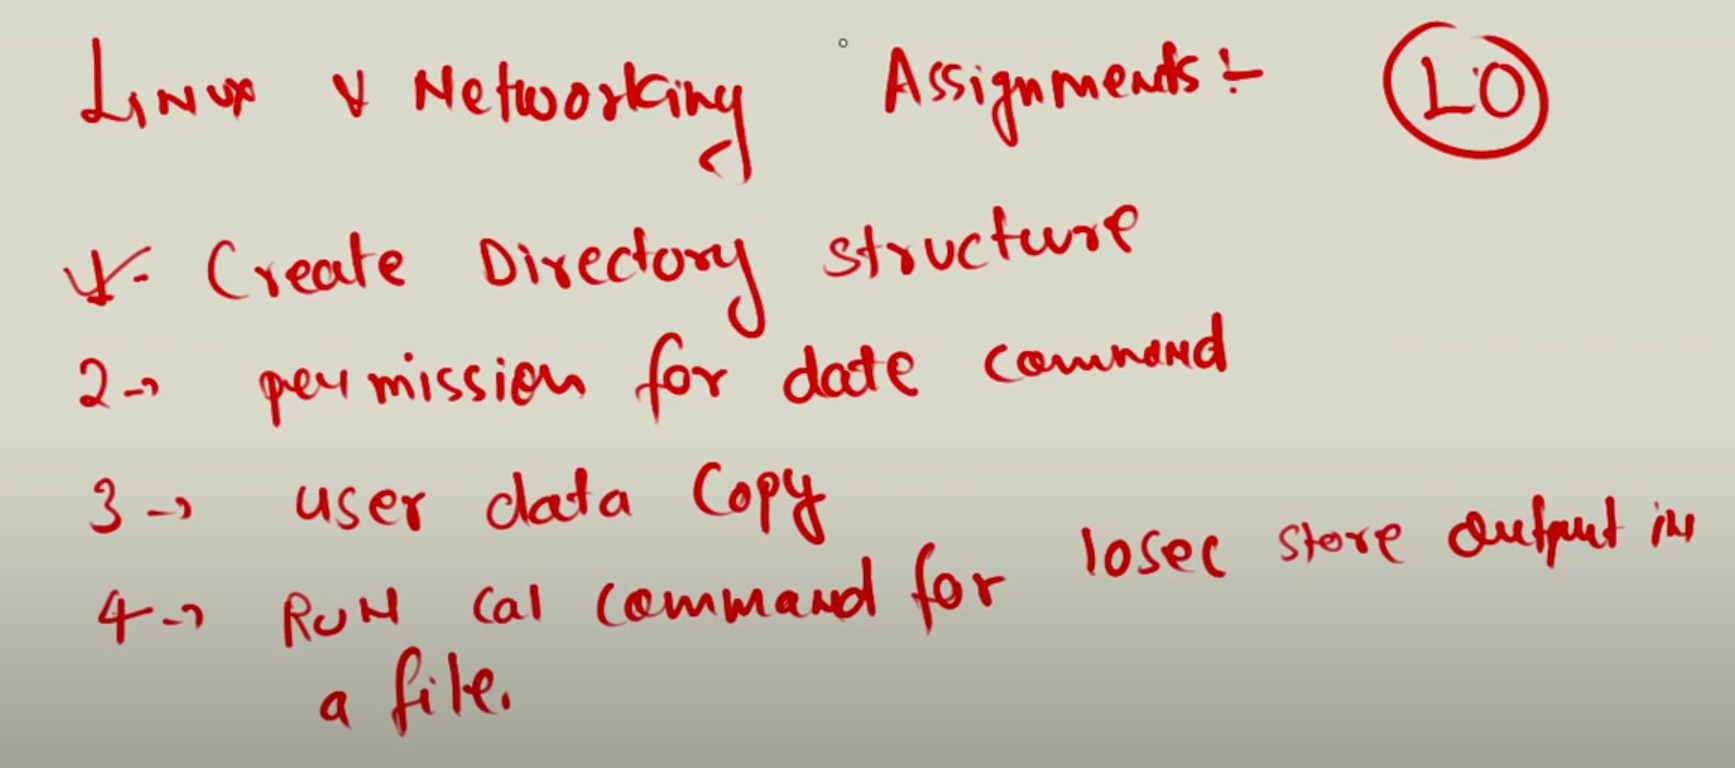 Linux & Networking Assignments:- L0
1- Create Directory structure
2-> permission for date command
3-> user data Copy
4-> RUN cal command for 10sec store output in
a file.